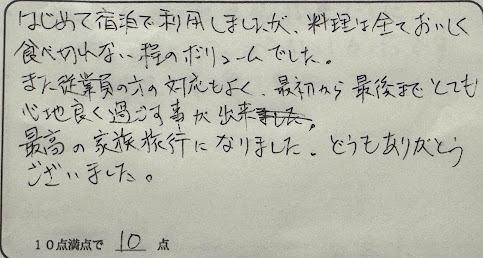 はじめて宿泊で利用しましたが、料理は全ておいしく
食べ切れない程のボリュームでした。
また従業員の方の対応もよく、最初から最後までとても
心地良く過ごす事が出来
最高の家族旅行になりました。どうもありがとう
ございました。
10点満点で 10 点